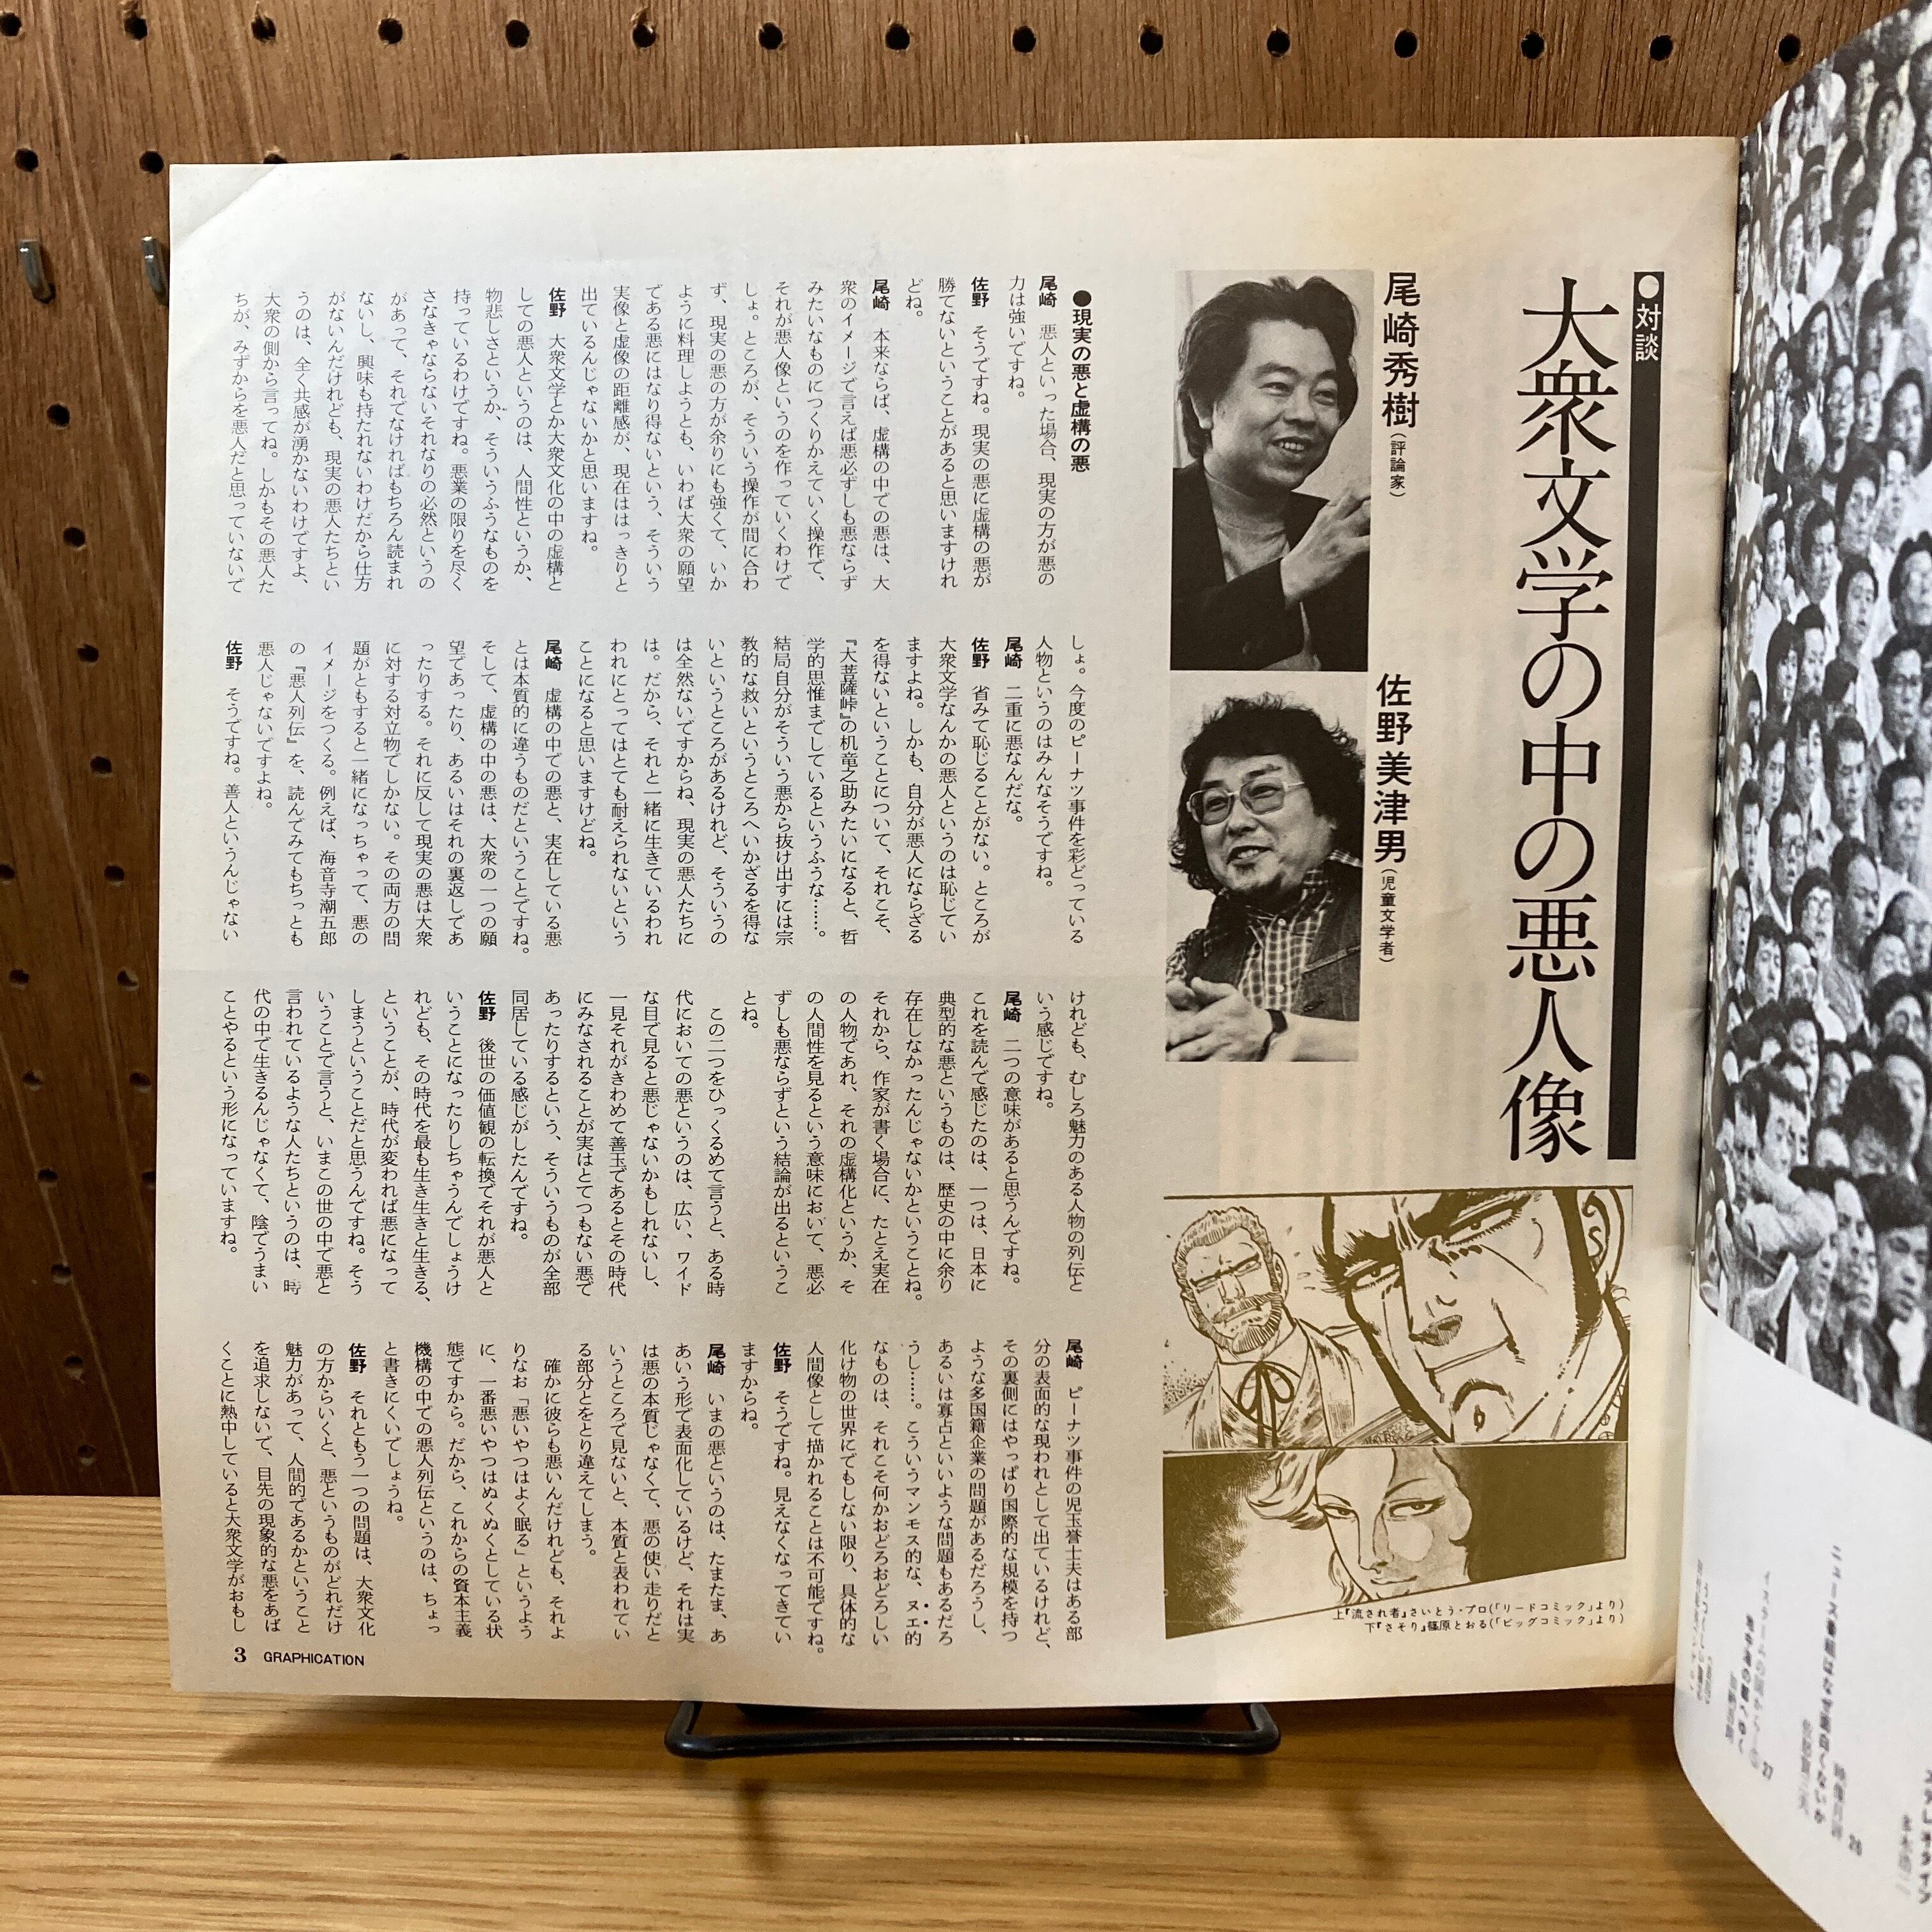 ●対談
大衆文学の中の悪人像
尾崎秀樹(評論家)
佐野美津男(児童文学者)
上『流され者』さいとう・プロ(「リードコミック」より)
下『さそり』篠原とおる(「ビッグコミック」より)
●現実の悪と虚構の悪
尾崎　悪人といった場合、現実の方が悪の
力は強いですね。
佐野　そうですね。現実の悪に虚構の悪が
勝てないということがあると思いますけれ
どね。
尾崎　本来ならば、虚構の中での悪は、大
衆のイメージで言えば悪必ずしも悪ならず
みたいなものにつくりかえていく操作で、
それが悪人像というのを作っていくわけで
しょ。ところが、そういう操作が間に合わ
ず、現実の悪の方が余りにも強くて、いか
ように料理しようとも、いわば大衆の願望
である悪にはなり得ないという、そういう
実像と虚像の距離感が、現在ははっきりと
出ているんじゃないかと思いますね。
佐野　大衆文学とか大衆文化の中の虚構と
しての悪人というのは、人間性というか、
物悲しさというか、そういうふうなものを
持っているわけですね。悪業の限りを尽く
さなきゃならないそれなりの必然というの
があって、それでなければもちろん読まれ
ないし、興味も持たれないわけだから仕方
がないんだけれども、現実の悪人たちとい
うのは、全く共感が湧かないわけですよ、
大衆の側から言ってね。しかもその悪人た
ちが、みずからを悪人だと思っていないで
しょ。今度のピーナツ事件を彩どっている
人物というのはみんなそうですね。
尾崎　二重に悪なんだな。
佐野　省みて恥じることがない。ところが
大衆文学なんかの悪人というのは恥じてい
ますよね。しかも、自分が悪人にならざる
を得ないということについて、それこそ、
『大菩薩峠』の机竜之助みたいになると、哲
学的思惟までしているというふうな……。
結局自分がそういう悪から抜け出すには宗
教的な救いというところへいかざるを得な
いというところがあるけれど、そういうの
は全然ないですからね、現実の悪人たちに
は。だから、それと一緒に生きているわれ
われにとってはとても耐えられないという
ことになると思いますけどね。
尾崎　虚構の中での悪と、実在している悪
とは本質的に違うものだということですね。
そして、虚構の中の悪は、大衆の一つの願
望であったり、あるいはそれの裏返しであ
ったりする。それに反して現実の悪は大衆
に対する対立物でしかない。その両方の問
題がともすると一緒になっちゃって、悪の
イメージをつくる。例えば、海音寺潮五郎
の『悪人列伝』を、読んでみてもちっとも
悪人じゃないですよね。
佐野　そうですね。善人というんじゃない
けれども、むしろ魅力のある人物の列伝と
いう感じですね。
尾崎　二つの意味があると思うんですね。
これを読んで感じたのは、一つは、日本に
典型的な悪というものは、歴史の中に余り
存在しなかったんじゃないかということね。
それから、作家が書く場合に、たとえ実在
の人物であれ、それの虚構化というか、そ
の人間性を見るという意味において、悪必
ずしも悪ならずという結論が出るというこ
とね。
　この二つをひっくるめて言うと、ある時
代においての悪というのは、広い、ワイド
な目で見ると悪じゃないかもしれないし、
一見それがきわめて善玉であるとその時代
にみなされることが実はとてつもない悪で
あったりするという、そういうものが全部
同居している感じがしたんですね。
佐野　後世の価値観の転換でそれが悪人と
いうことになったりしちゃうんでしょうけ
れども、その時代を最も生き生きと生きる、
ということが、時代が変われば悪になって
しまうということだと思うんですね。そう
いうことで言うと、いまこの世の中で悪と
言われているような人たちというのは、時
代の中で生きるんじゃなくて、陰でうまい
ことやるという形になっていますね。
尾崎　ピーナツ事件の児玉誉士夫はある部
分の表面的な現われとして出ているけれど、
その裏側にはやっぱり国際的な規模を持つ
ような多国籍企業の問題があるだろうし、
あるいは寡占といいような問題もあるだろ
うし……。こういうマンモス的な、ヌエ的
なものは、それこそ何かおどろおどろしい
化け物の世界にでもしない限り、具体的な
人間像として描かれることは不可能ですね。
佐野　そうですね。見えなくなってきてい
ますからね。
尾崎　いまの悪というのは、たまたま、あ
あいう形で表面化しているけど、それは実
は悪の本質じゃなくて、悪の使い走りだと
いうところで見ないと、本質と表われてい
る部分とをとり違えてしまう。
　確かに彼らも悪いんだけれども、それよ
りなお「悪いやつはよく眠る」というよう
に、一番悪いやつはぬくぬくとしている状
態ですから。だから、これからの資本主義
機構の中での悪人列伝というのは、ちょっ
と書きにくいでしょうね。
佐野　それともう一つの問題は、大衆文化
の方からいくと、悪というものがどれだけ
魅力があって、人間的であるかということ
を追求しないで、目先の現象的な悪をあば
くことに熱中していると大衆文学がおもし
3 GRAPHICATION
ニュース番組はなぜ面白くないか
27
26